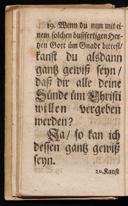 19. Wenn du nun mit ei-
nem solchen bußfertigen Her-
tzen Gott üm Gnade bittest/
kanst du alsdann
gantz gewiß seyn/
daß dir alle deine
Sünde üm Christi
willen vergeben
werden?
Ja/ so kan ich
dessen gantz gewiß
seyn.
20. Kanst